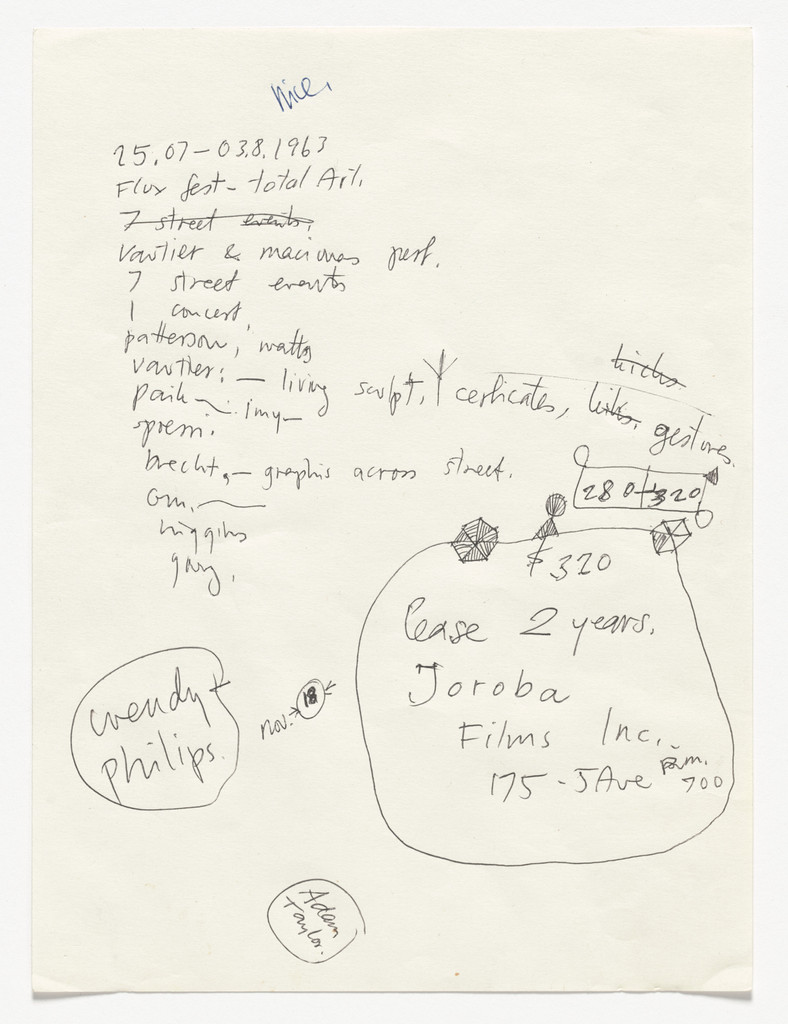 Nice,
25.07 – 03.8.1963
Flux fest – total Art.
7 street events.
Vautier & maciunas perf.
7 street events
1 concert,
patterson, watts
kicks
Vautier: – living sculpt, certicates, links, gestures.
paik
spoerri.
brecht, – graphis across street.
280 – 320
om.
higgins
$320
lease 2 years.
wendy
philips.
nov. 18
Joroba
Films Inc.
175 - 5 Ave rm. 700
Adam
Taylor.